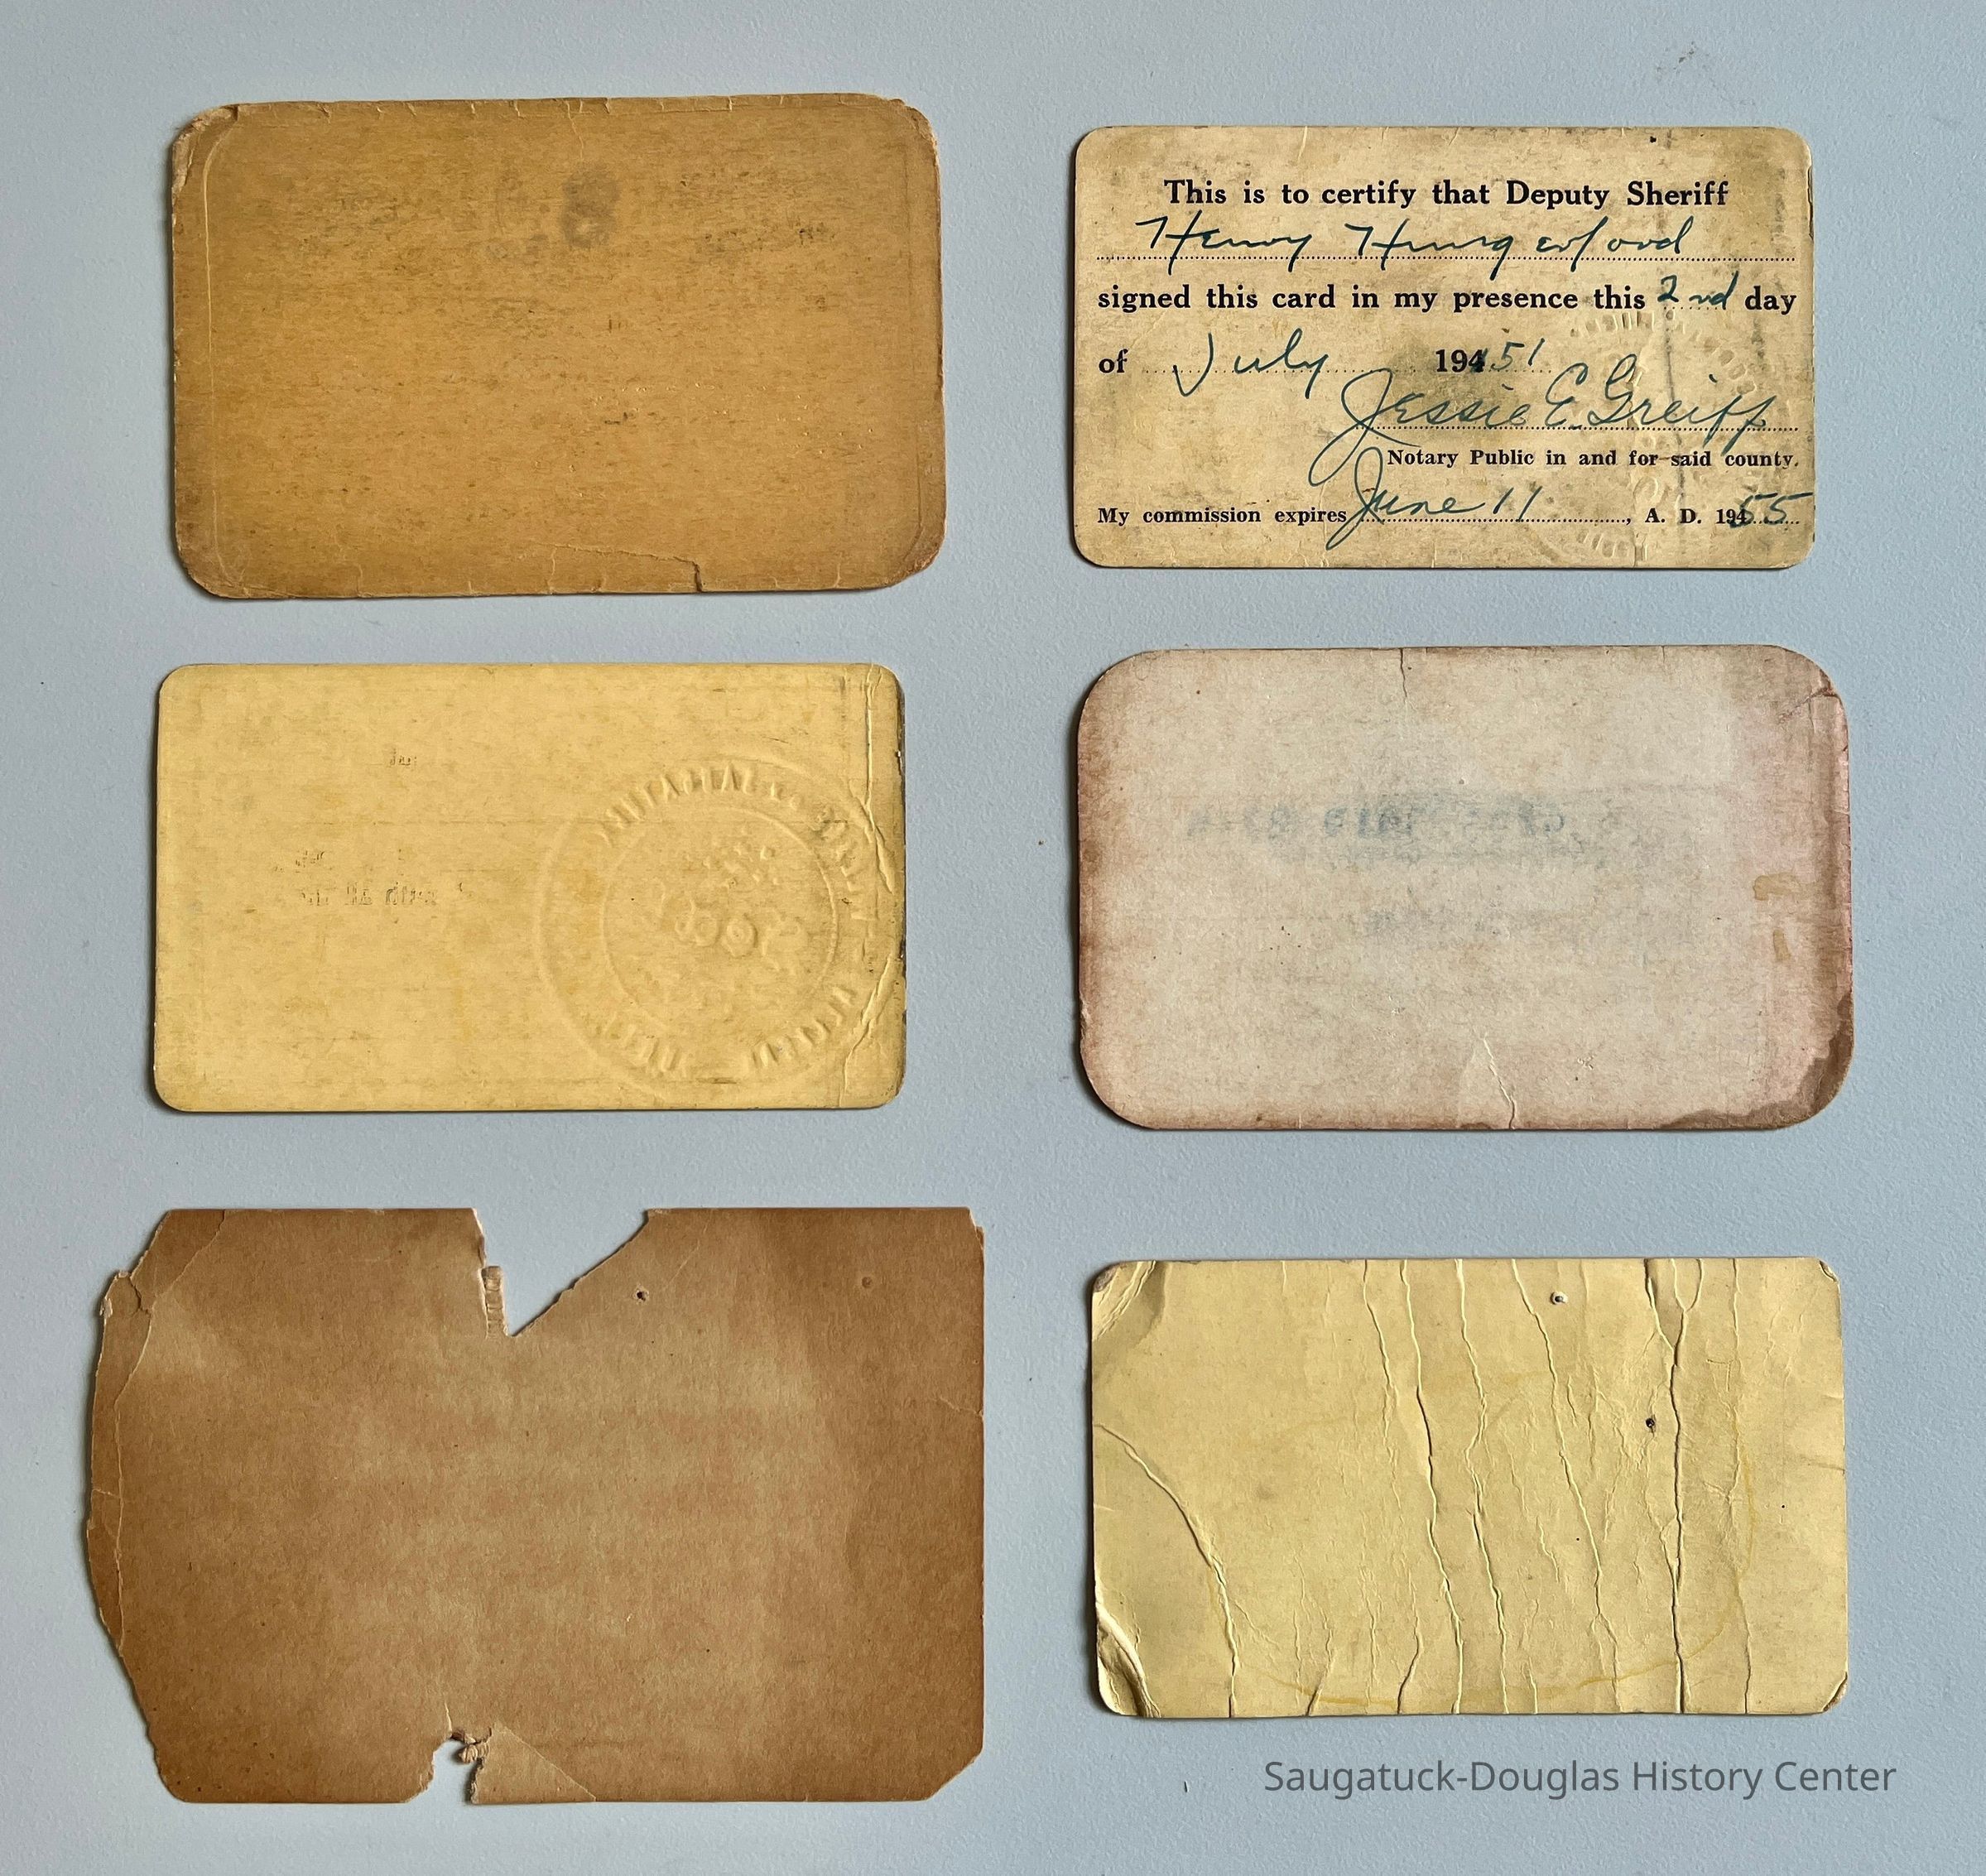 8
This is to certify that Deputy Sheriff
Henry Hungerford
signed this card in my presence this 2nd day
of July 194 51
Jessie E. Greiff
Notary Public in and for said county.
My commission expires June 11, A. D. 194 55
Saugatuck-Douglas History Center